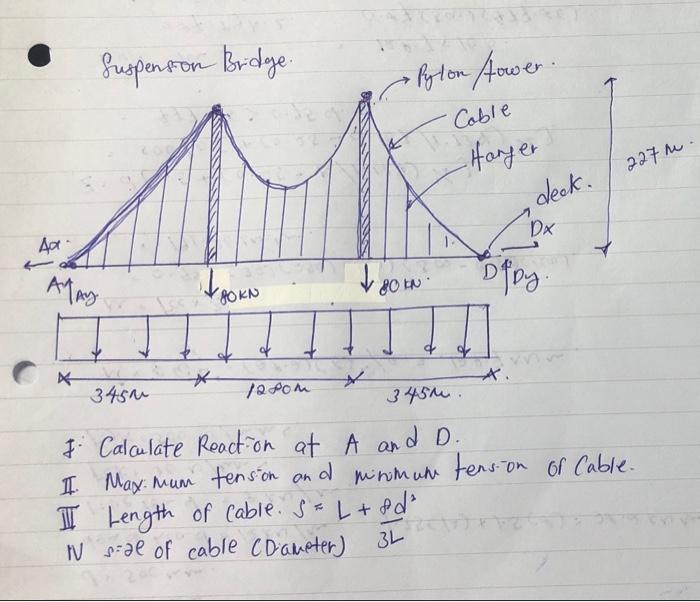 Suspension Bridge.
Pylon/tower.
Cable
Hanger
227 m.
deck.
Dx
Ax.
A
Ay
80KN
80KN.
D
Dy.
345m
1280m
345m.
I. Calculate Reaction at A and D.
II Maximum tension and minimum tension of Cable.
III Length of Cable. S = L + 8d²/3L
IV size of cable (Diameter)